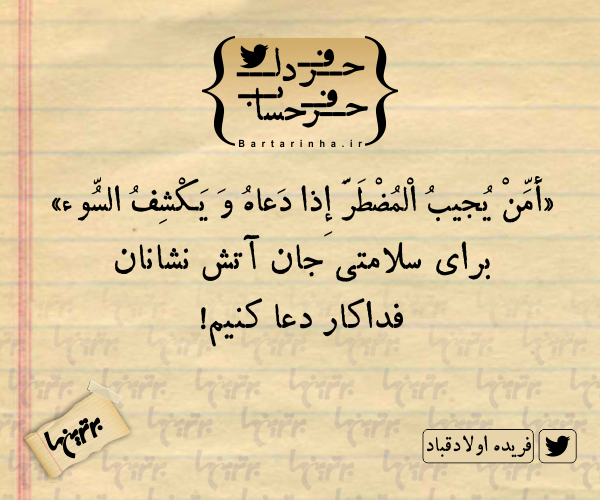 حرف دل
حرف حساب
Bartarinha.ir
«أَمَّنْ يُجيبُ الْمُضْطَرَّ إِذا دَعاهُ وَ يَكْشِفُ السُّوء»
برای سلامتی جان آتش نشانان
فداکار دعا کنیم!
برترین‌ها
فریده اولادقباد